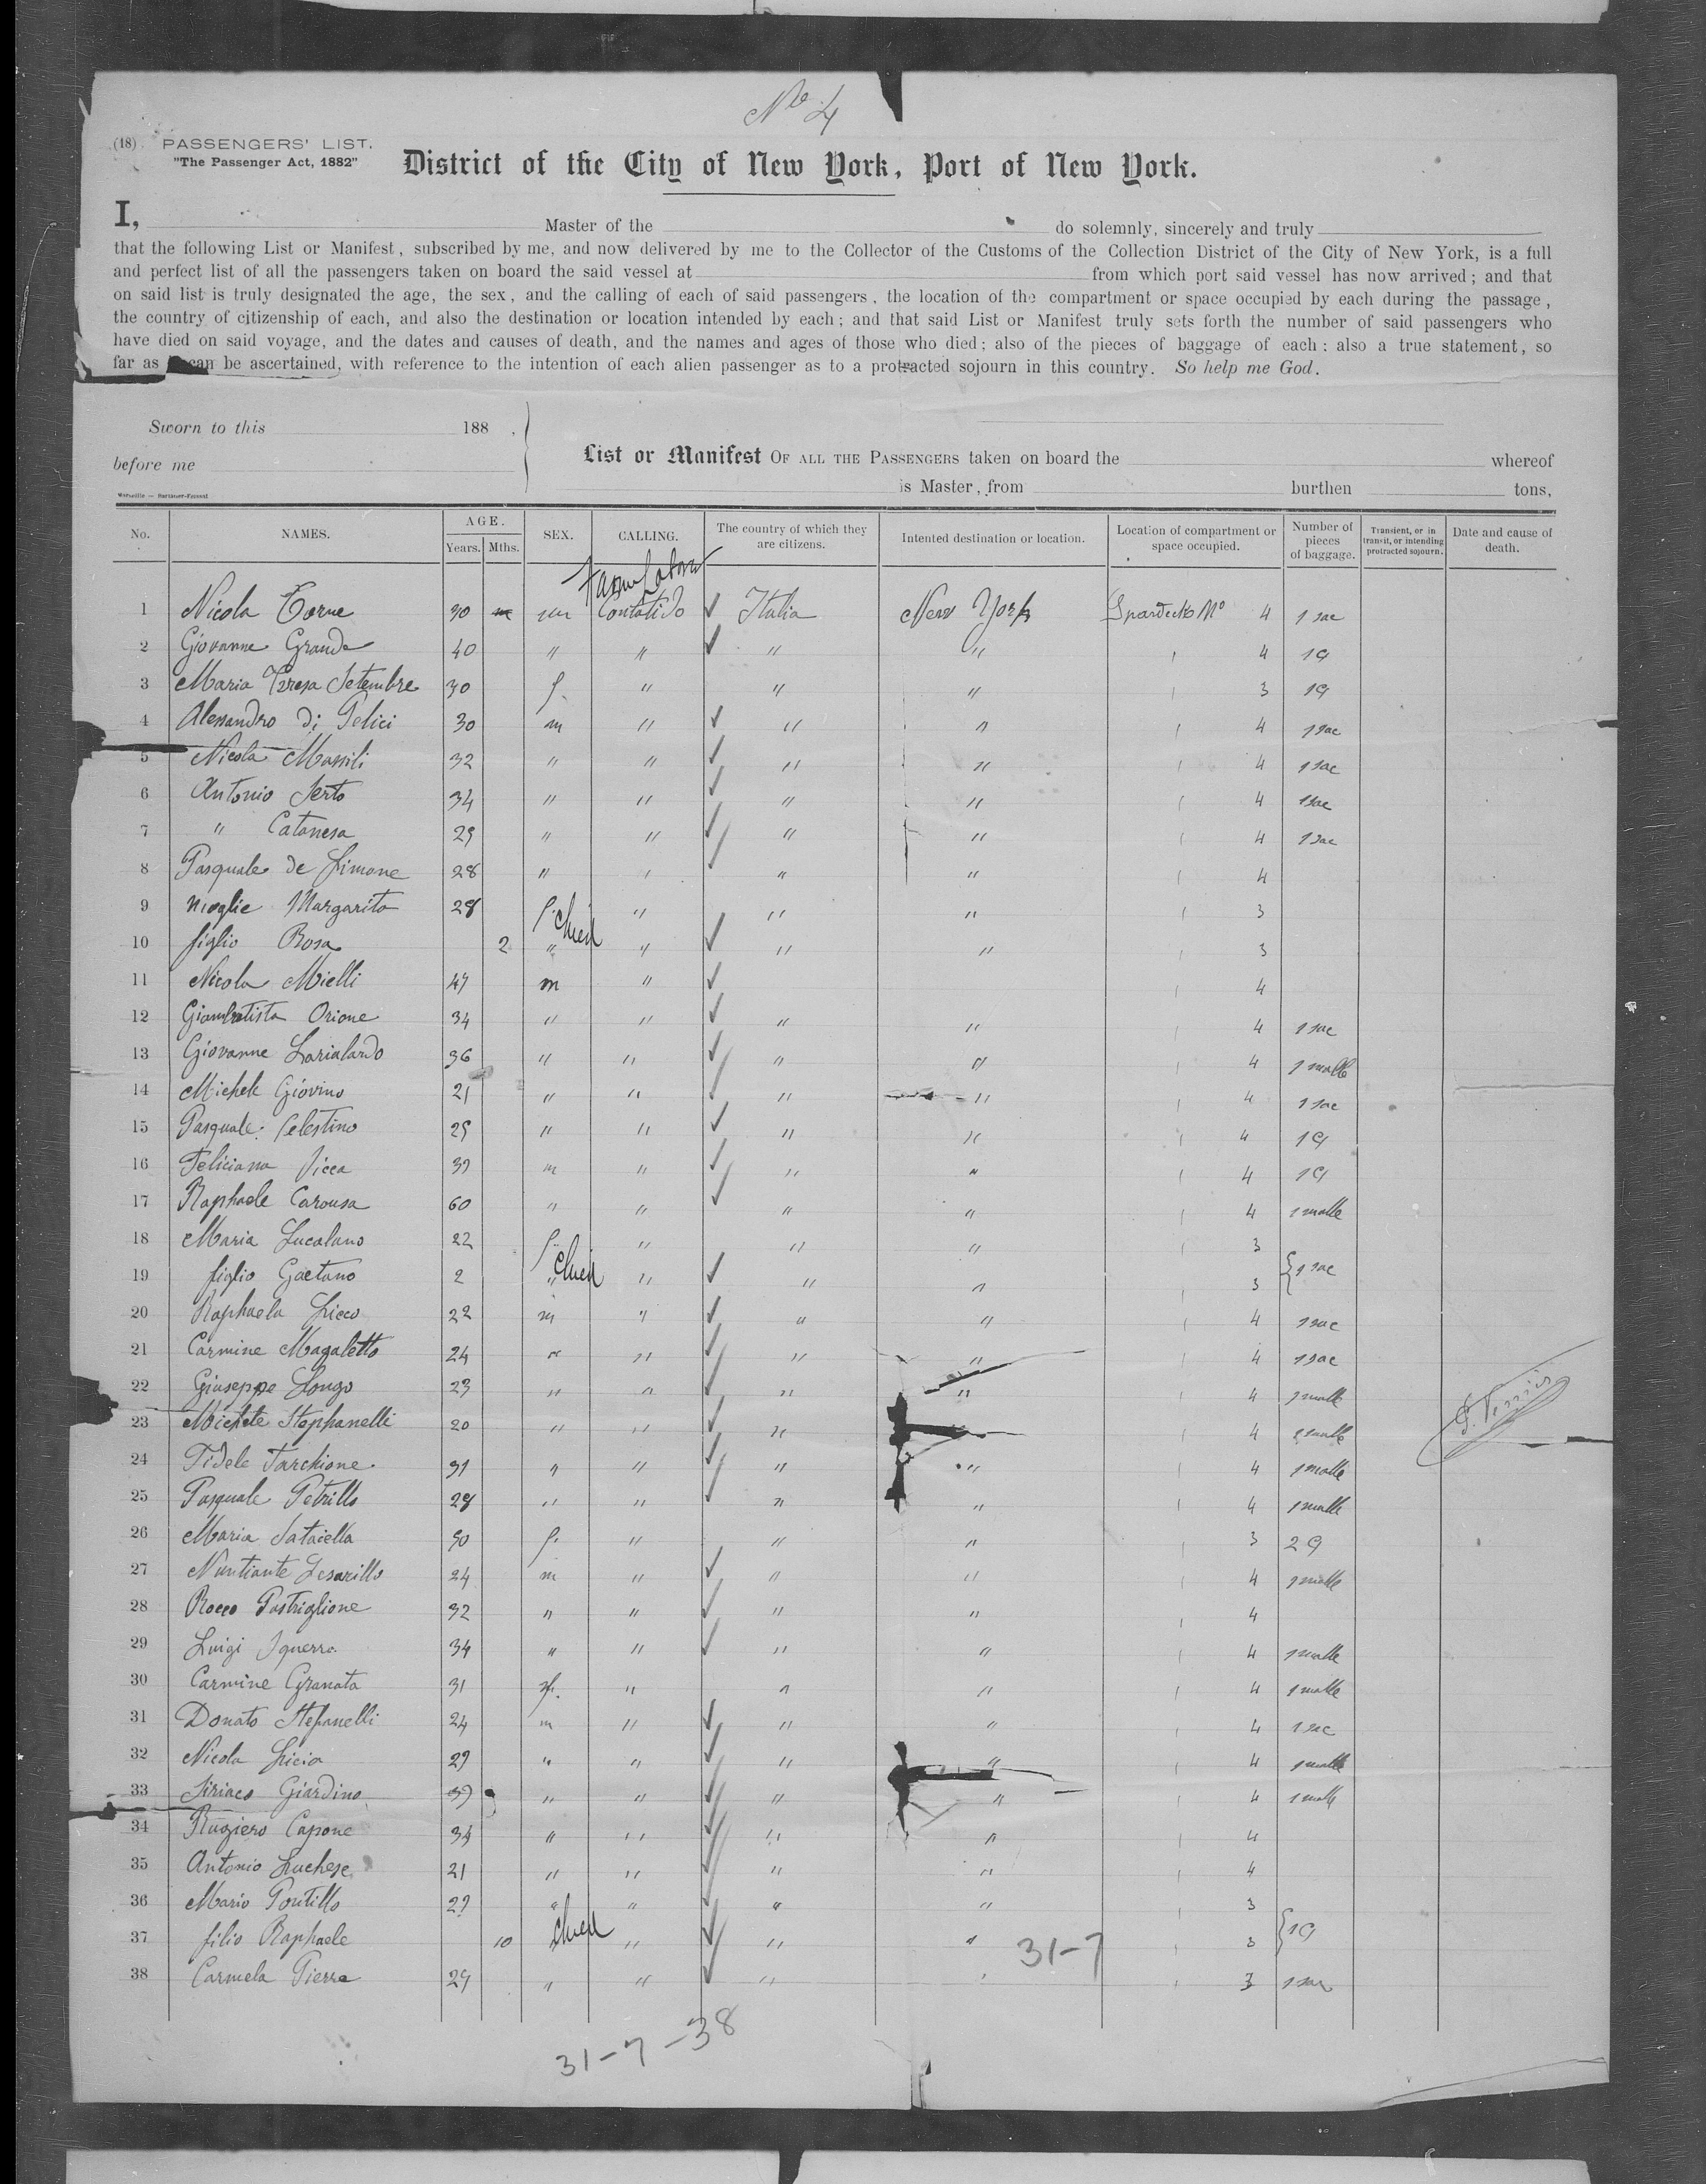 No 4
(18) PASSENGERS' LIST.
"The Passenger Act, 1882"
District of the City of New York, Port of New York.
I, Master of the do solemnly, sincerely and truly
that the following List or Manifest, subscribed by me, and now delivered by me to the Collector of the Customs of the Collection District of the City of New York, is a full
and perfect list of all the passengers taken on board the said vessel at from which port said vessel has now arrived; and that
on said list is truly designated the age, the sex, and the calling of each of said passengers, the location of the compartment or space occupied by each during the passage,
the country of citizenship of each, and also the destination or location intended by each; and that said List or Manifest truly sets forth the number of said passengers who
have died on said voyage, and the dates and causes of death, and the names and ages of those who died; also of the pieces of baggage of each: also a true statement, so
far as can be ascertained, with reference to the intention of each alien passenger as to a protracted sojourn in this country. So help me God.
Sworn to this 188 .
before me
List or Manifest OF ALL THE PASSENGERS taken on board the whereof
is Master, from burthen tons,
No. NAMES. AGE. Years. Mths. SEX. CALLING. The country of which they are citizens. Intented destination or location. Location of compartment or space occupied. Number of pieces of baggage. Transient, or in transit, or intending protracted sojourn. Date and cause of death.
1 Nicola Torne 30 m Italia New York 4 1 sac
2 Giovanne Grande 40 " " " " 4 1 9
3 Maria Teresa Setembre 30 f. " " " 3 1 9
4 Alessandro di Felici 30 m " " " 4 1 sac
5 Nicola Massili 32 " " " " 4 1 sac
6 Antonio Serto 34 " " " " 4 1 sac
7 " Catanesa 25 " " " " 4 1 sac
8 Pasquale de Simone 28 " " " " 4
9 moglie Margarita 28 f. " " " 3
10 figlio Rosa 2 " " " " 3
11 Nicola Mielli 47 m " 4
12 Giambatista Orione 34 " " " " 4 1 sac
13 Giovanne 36 " " " " 4 1 malle
14 Michele Giovino 21 " " " " 4 1 sac
15 Pasquale Celestino 25 " " " " 4 1 9
16 Feliciana m " " " 4 1 9
17 Raphaele Carousa 60 " " " " 4 1 malle
18 Maria Lucalano 22 f. " " " 3
19 figlio Gaetano 2 " " " " 3 1 sac
20 Raphaela 22 m " " " 4 1 sac
21 Carmine Magaletto 24 " " " " 4 1 sac
22 Giuseppe Longo 23 " " " " 4 1 malle
23 Michele Stephanelli 20 " " " " 4 1 malle
24 Fidele Tarchione 31 " " " " 4 1 malle
25 Pasquale Petrillo 28 " " " " 4 1 malle
26 Maria Sataiella f. " " " 3 2 9
27 Nuntiante 24 m " " " 4 1 malle
28 Rocco Pastriglione 32 " " " " 4
29 Luigi 34 " " " " 4 1 malle
30 Carmine Granata 31 " " " 4 1 malle
31 Donato Stefanelli 24 m " " " 4 1 sac
32 Nicola " " " " 4 1 malle
33 Giardino " " " " 4 1 malle
34 Rugiero Capone 34 " " " " 4
35 Antonio Luchese 21 " " " " 4
36 Maria Pontillo " " " " 3
37 filio Raphaele 10 " " " 3 1 9
38 Carmela Pierra 29 " " " " 3 1 sac
31-7
31-7-38